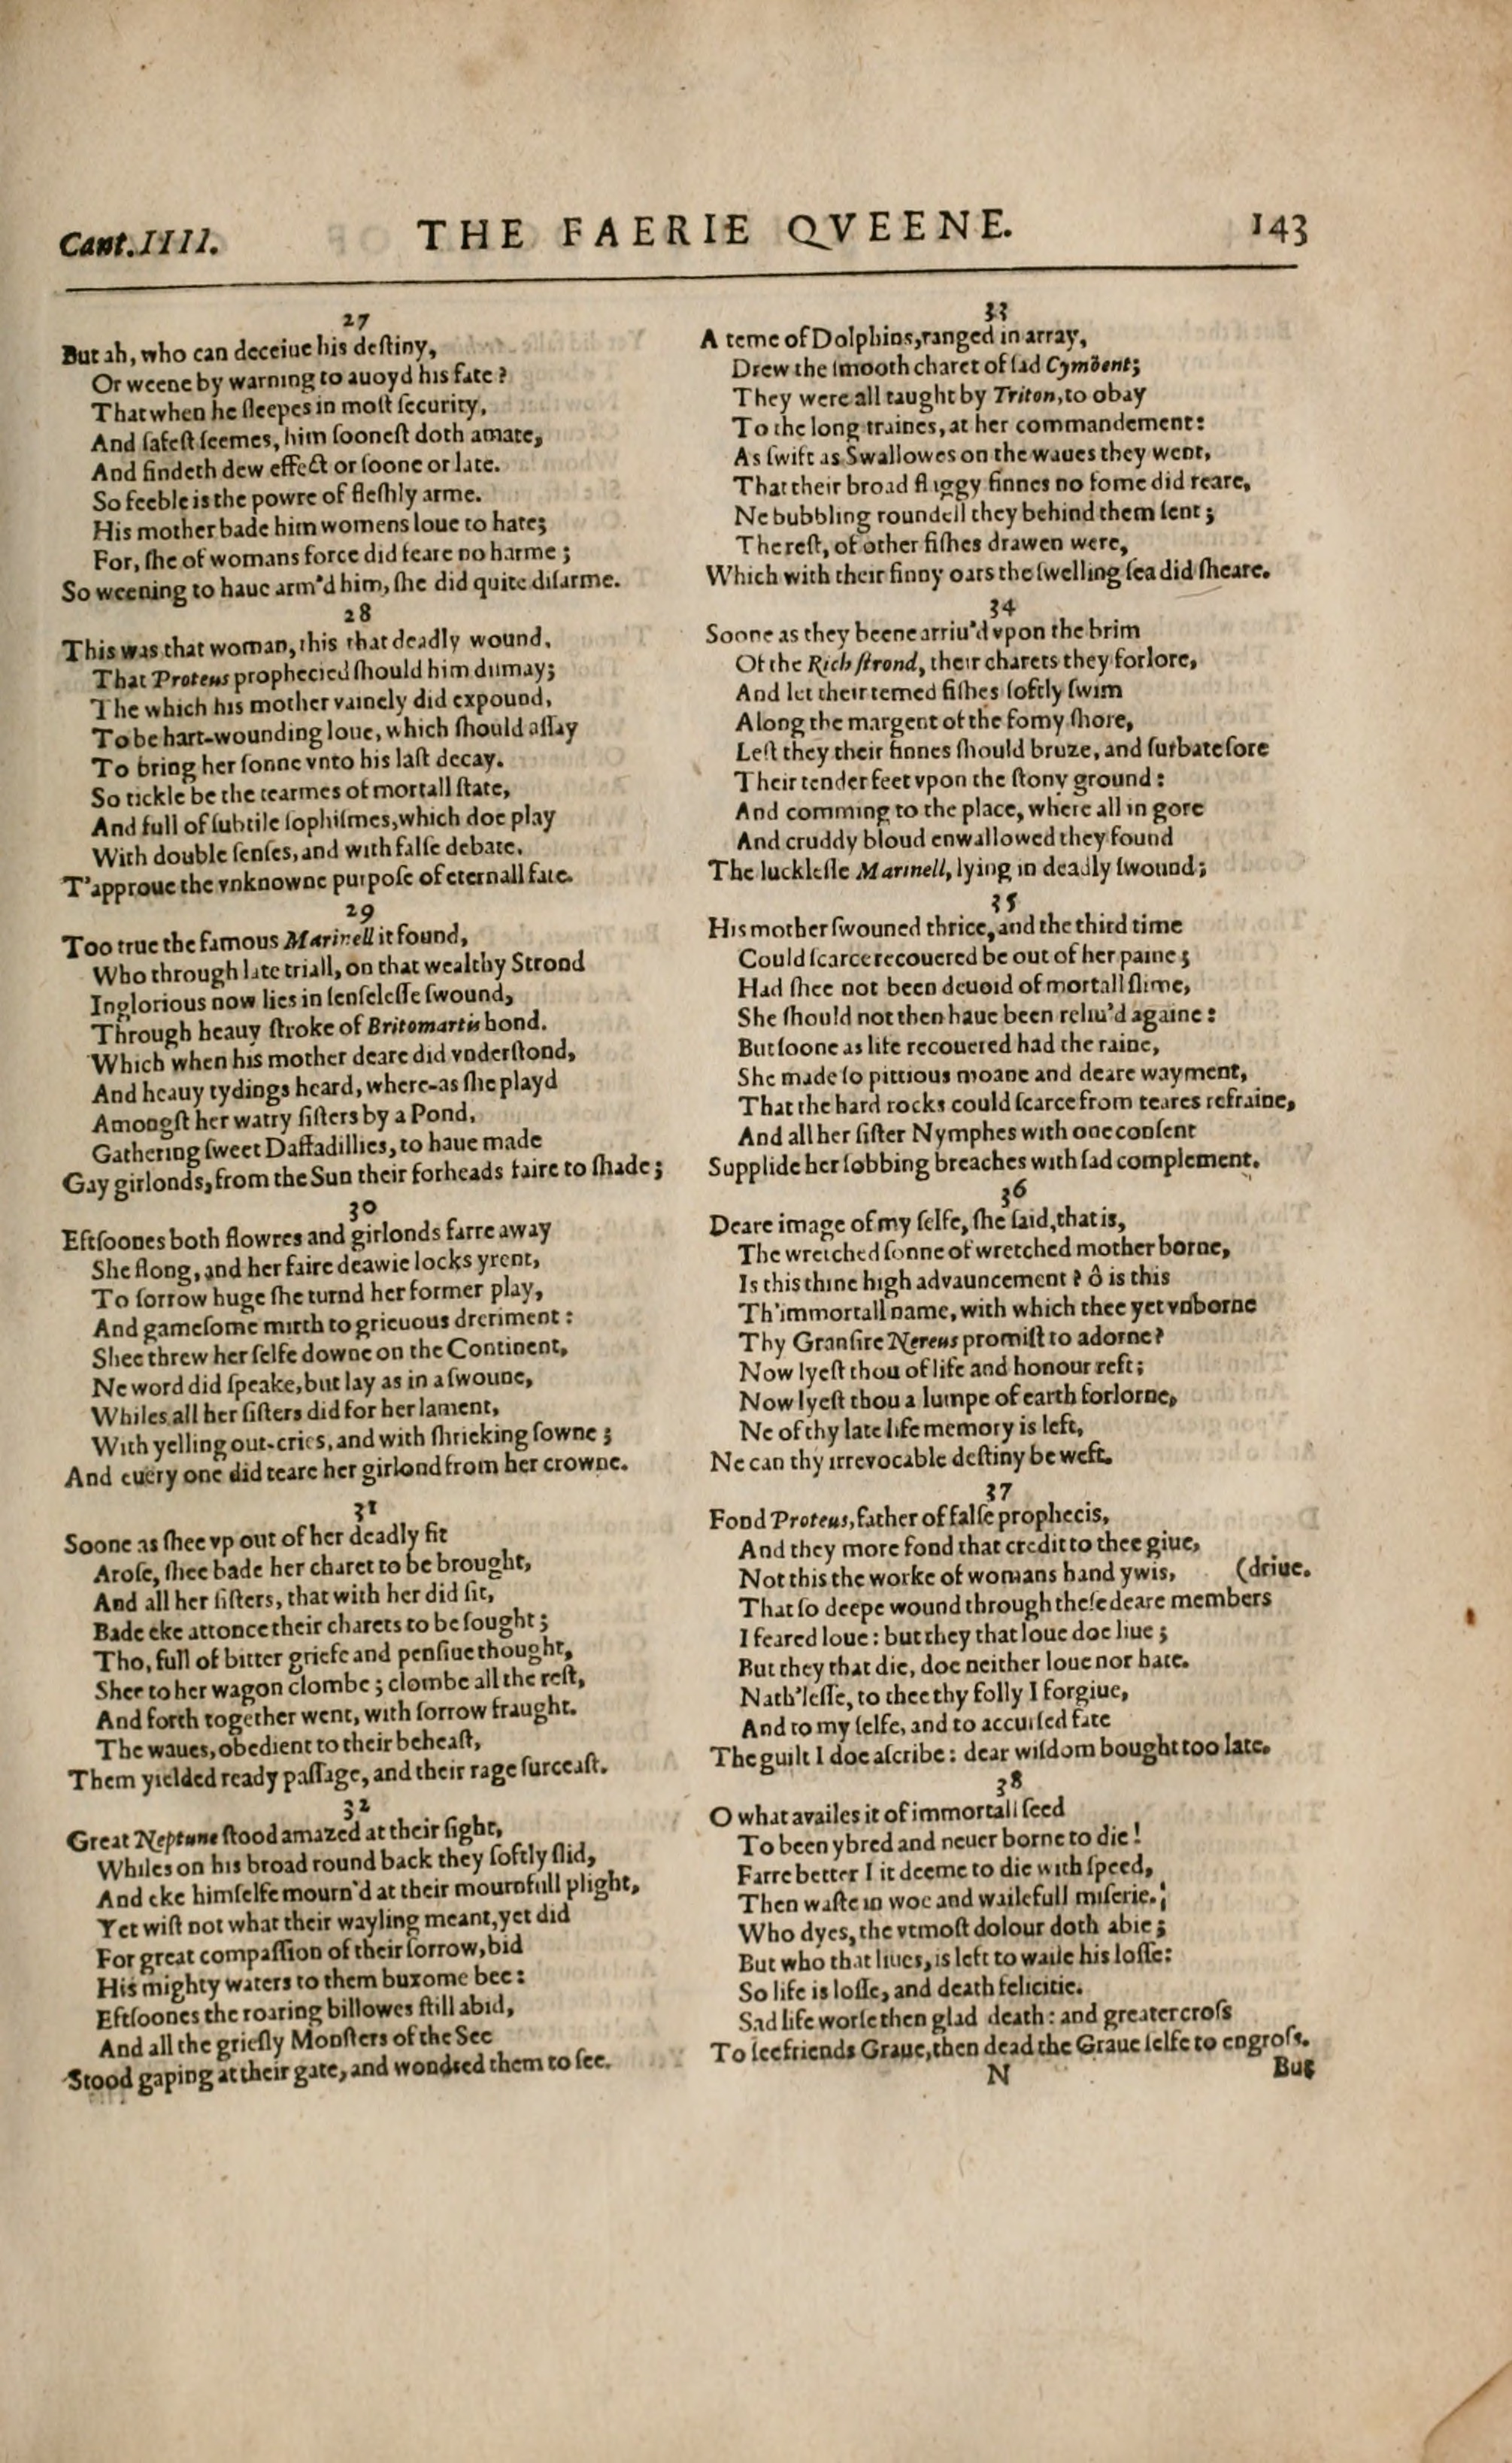 Cant. IIII.
THE FAERIE QVEENE.
143
27
But ah, who can deceiue his deſtiny,
Or weene by warning to auoyd his fate?
That when he ſleepes in moſt ſecurity,
And ſafeſt ſeemes, him ſooneſt doth amate,
And findeth dew effect or ſoone or late.
So feeble is the powre of fleſhly arme.
His mother bade him womens loue to hate;
For, ſhe of womans force did feare no harme;
So weening to haue arm'd him, ſhe did quite diſarme.
28
This was that woman, this that deadly wound,
That Proteus prophecied ſhould him diſmay;
The which his mother vainely did expound,
To be hart-wounding loue, which ſhould aſſay
To bring her ſonne vnto his laſt decay.
So tickle be the tearmes of mortall ſtate,
And full of ſubtile ſophiſmes, which doe play
With double ſenſes, and with falſe debate,
T'approue the vnknowne purpoſe of eternall fate.
29
Too true the famous Marinell it found,
Who through late triall, on that wealthy Strond
Inglorious now lies in ſenſeleſſe ſwound,
Through heauy ſtroke of Britomartis hond.
Which when his mother deare did vnderſtond,
And heauy tydings heard, where-as ſhe playd
Amongſt her watry ſiſters by a Pond,
Gathering ſweet Daffadillies, to haue made
Gay girlonds, from the Sun their forheads faire to ſhade;
30
Eftſoones both flowres and girlonds farre away
She flong, and her faire deawie locks yrent,
To ſorrow huge ſhe turnd her former play,
And gameſome mirth to grieuous dreriment:
Shee threw her ſelfe downe on the Continent,
Ne word did ſpeake, but lay as in a ſwoune,
Whiles all her ſiſters did for her lament,
With yelling out-cries, and with ſhrieking ſowne;
And euery one did teare her girlond from her crowne.
31
Soone as ſhee vp out of her deadly fit
Aroſe, ſhee bade her charet to be brought,
And all her ſiſters, that with her did ſit,
Bade eke attonce their charets to be ſought;
Tho, full of bitter griefe and penſiue thought,
Shee to her wagon clombe; clombe all the reſt,
And forth together went, with ſorrow fraught.
The waues, obedient to their beheaſt,
Them yielded ready paſſage, and their rage ſurceaſt.
32
Great Neptune ſtood amazed at their ſight,
Whiles on his broad round back they ſoftly ſlid,
And eke himſelfe mourn'd at their mournfull plight,
Yet wiſt not what their wayling meant, yet did
For great compaſſion of their ſorrow, bid
His mighty waters to them buxome bee:
Eftſoones the roaring billowes ſtill abid,
And all the grieſly Monſters of the See
Stood gaping at their gate, and wondred them to ſee.
33
A teme of Dolphins, ranged in array,
Drew the ſmooth charet of ſad Cymöent;
They were all taught by Triton, to obay
To the long traines, at her commandement:
As ſwift as Swallowes on the waues they went,
That their broad flaggy finnes no fome did reare,
Ne bubbling roundell they behind them ſent;
The reſt, of other fiſhes drawen were,
Which with their finny oars the ſwelling ſea did ſheare.
34
Soone as they beene arriu'd vpon the brim
Of the Rich ſtrond, their charets they forlore,
And let their temed fiſhes ſoftly ſwim
Along the margent of the fomy ſhore,
Leſt they their finnes ſhould bruze, and ſurbate ſore
Their tender feet vpon the ſtony ground:
And comming to the place, where all in gore
And cruddy bloud enwallowed they found
The luckleſſe Marinell, lying in deadly ſwound;
35
His mother ſwouned thrice, and the third time
Could ſcarce recouered be out of her paine;
Had ſhee not been deuoid of mortall ſlime,
She ſhould not then haue been reliu'd againe:
But ſoone as life recouered had the raine,
She made ſo pittious moane and deare wayment,
That the hard rocks could ſcarce from teares refraine,
And all her ſiſter Nymphes with one conſent
Supplide her ſobbing breaches with ſad complement.
36
Deare image of my ſelfe, ſhe ſaid, that is,
The wretched ſonne of wretched mother borne,
Is this thine high advauncement? ô is this
Th'immortall name, with which thee yet vnborne
Thy Granſire Nereus promiſt to adorne?
Now lyeſt thou of life and honour reft;
Now lyeſt thou a lumpe of earth forlorne,
Ne of thy late life memory is left,
Ne can thy irrevocable deſtiny be weft.
37
Fond Proteus, father of falſe prophecis,
And they more fond that credit to thee giue,
Not this the worke of womans hand ywis, (driue.
That ſo deepe wound through theſe deare members
I feared loue: but they that loue doe liue;
But they that die, doe neither loue nor hate.
Nath'leſſe, to thee thy folly I forgiue,
And to my ſelfe, and to accurſed fate
The guilt I doe aſcribe: dear wiſdom bought too late.
38
O what availes it of immortall ſeed
To been ybred and neuer borne to die!
Farre better I it deeme to die with ſpeed,
Then waſte in woe and wailefull miſerie.
Who dyes, the vtmoſt dolour doth abie;
But who that liues, is left to waile his loſſe:
So life is loſſe, and death felicitie.
Sad life worſe then glad death: and greater croſs
To ſee friends Graue, then dead the Graue ſelfe to engroſs.
N
But